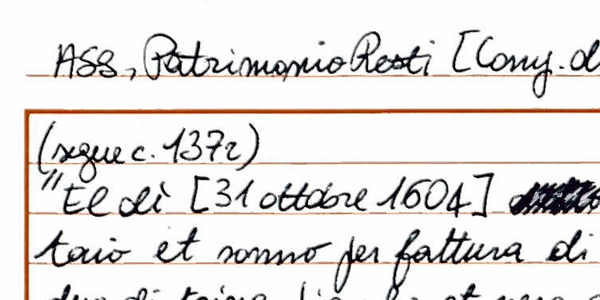 ASS, Patrimonio Resti [Conv. d
(segue c. 137r)
"El dì [31 ottobre 1604]
taio et sonno per fattura di
due di